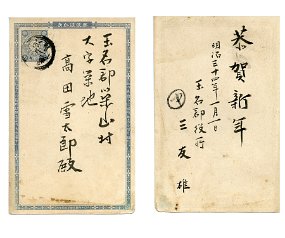 郵便はがき
玉名郡小天村
大字菊池
高田雪太郎殿
恭賀新年
明治三十四年一月一日
玉名郡役所
三友雄